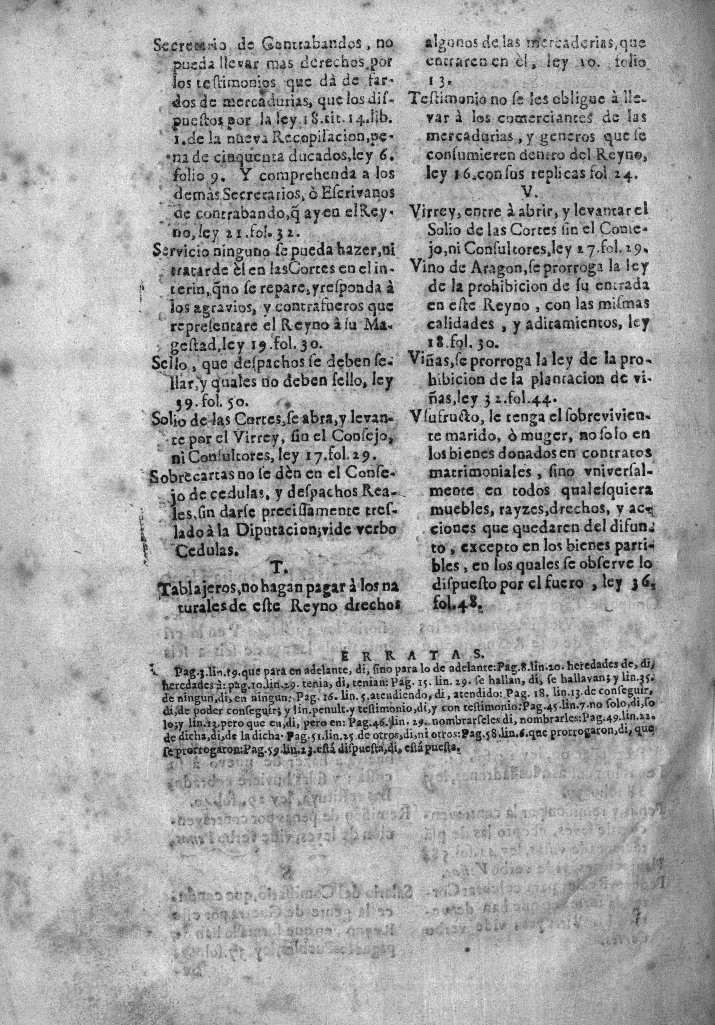 Secretario de Contrabandos, no
pueda llevar mas derechos por
los testimonios que dà de far-
dos de mercadurias, que los dis-
puestos por la ley 18. tit. 14. lib.
1. de la nueva Recopilacion, pe-
na de cinquenta ducados, ley 6.
folio 9. Y comprehenda a los
demàs Secretarios, ò Escrivanos
de contrabando, q̃ ay en el Rey-
no, ley 21. fol. 32.
Servicio ninguno se pueda hazer, ni
tratar de èl en las Cortes en el in-
terin, q̃ no se repare, y responda à
los agravios, y contrafueros que
representare el Reyno à su Ma-
gestad, ley 19. fol. 30.
Sello, que despachos se deben se-
llar, y quales no deben sello, ley
39. fol. 50.
Solio de las Cortes, se abra, y levan-
te por el Virrey, sin el Consejo,
ni Consultores, ley 17. fol. 29.
Sobrecartas no se dèn en el Conse-
jo de cedulas, y despachos Rea-
les, sin darse precissamente tres-
lado à la Diputacion, vide verbo
Cedulas.
T.
Tablajeros, no hagan pagar à los na
turales de este Reyno drechos
algunos de las mercaderias, que
entraren en èl, ley 10. folio
13.
Testimonio no se les obligue à lle-
var à los comerciantes de las
mercadurias, y generos que se
consumieren dentro del Reyno,
ley 16. con sus replicas fol. 24.
V.
Virrey, entre à abrir, y levantar el
Solio de las Cortes sin el Conse-
jo, ni Consultores, ley 17. fol. 29.
Vino de Aragon, se prorroga la ley
de la prohibicion de su entrada
en este Reyno, con las mismas
calidades, y aditamientos, ley
18. fol. 30.
Viñas, se prorroga la ley de la pro-
hibicion de la plantacion de vi-
ñas, ley 32. fol. 44.
Vsufructo, le tenga el sobrevivien-
te marido, ò muger, no solo en
los bienes donados en contratos
matrimoniales, sino vniversal-
mente en todos qualesquiera
muebles, rayzes, drechos, y ac-
ciones que quedaren del difun-
to, excepto en los bienes parti-
bles, en los quales se observe lo
dispuesto por el fuero, ley 36.
fol. 48.
ERRATAS.
Pag. 3. lin. 19. que para en adelante, di, sino para lo de adelante: Pag. 8. lin. 20. heredades de, di,
heredades à: pag. 10. lin. 29. tenia, di, tenian: Pag. 15. lin. 29. se hallan, di, se hallavan; y lin. 35.
de ningun, di, en ningun: Pag. 16. lin. 5. atendiendo, di, atendido: Pag. 18. lin. 13. de conseguir,
di, de poder conseguir; y lin. penult. y testimonio, di, y con testimonio: Pag. 45. lin. 7. no solo, di, so
lo, y lin. 13. pero que en, di, pero en: Pag. 46. lin. 29. nombrarseles di, nombrarles: Pag. 49. lin. 22.
de dicha, di, de la dicha. Pag. 51. lin. 25 de otros, di, ni otros: Pag. 58. lin. 6. que prorrogaron, di, que
se prorrogaron: Pag. 59. lin. 23. està dispuesta, di, està puesta.